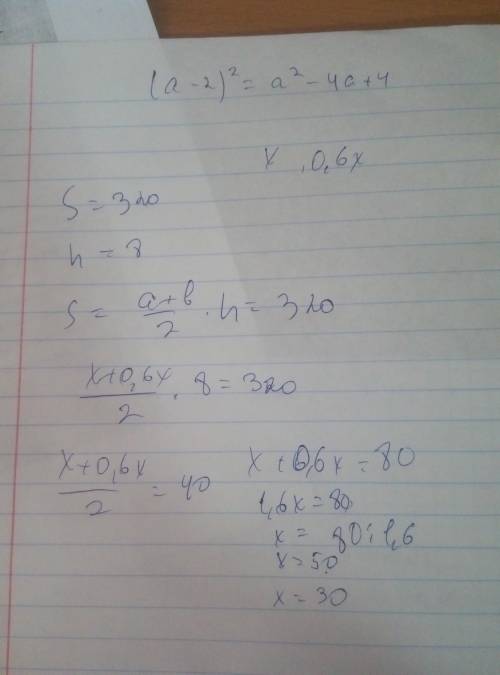 (a - 2)² = a² - 4a + 4
x , 0,6x
S = 320
h = 8
S = (a + b)/2 · h = 320
(x + 0,6x)/2 · 8 = 320
(x + 0,6x)/2 = 40
x + 0,6x = 80
1,6x = 80
x = 80 : 1,6
x = 50
x = 30